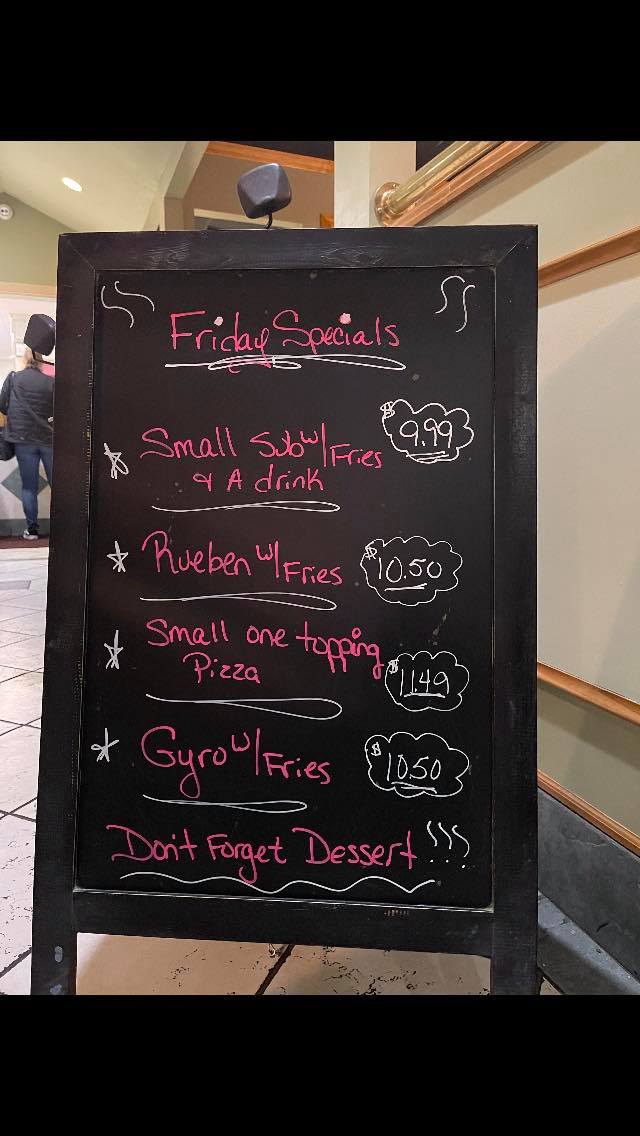 Friday Specials
$9.99
Small Sub w/ Fries
& A drink
Rueben w/ Fries $10.50
Small one topping
Pizza $11.49
Gyro w/ Fries $10.50
Don't Forget Dessert !!!